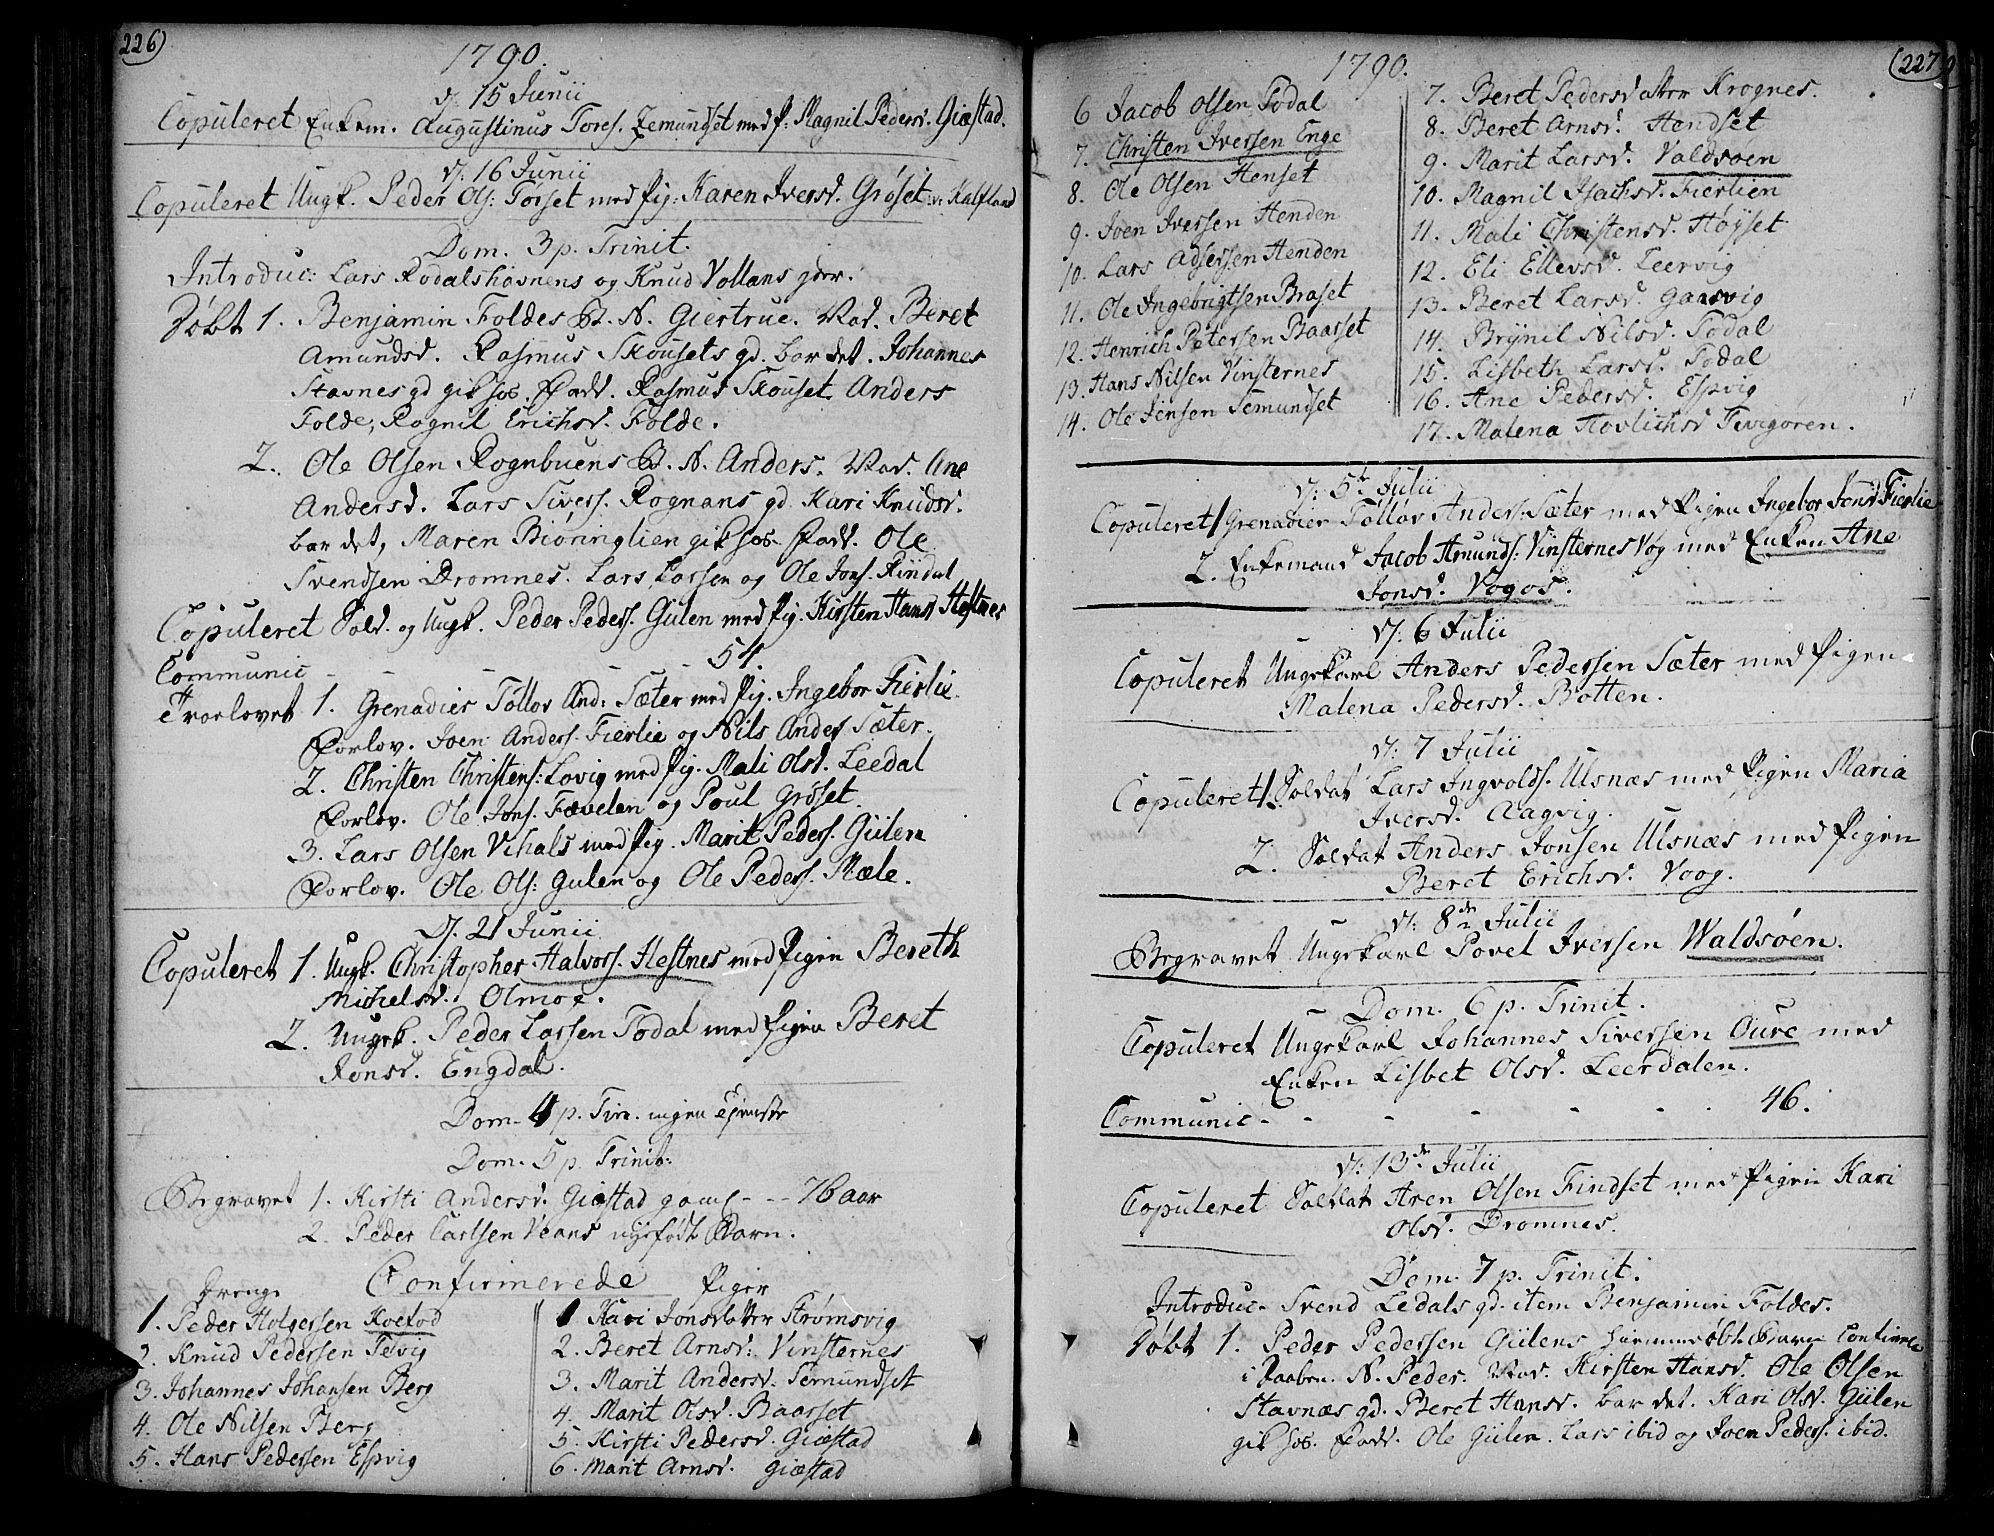 226)
1790.
d: 15 Junii
Copuleret Enkem. Augustinus Tores. Zemundset med P: Magnil Pedersd. Giæstad.
d: 16 Junii
Copuleret Ungk. Peder Ols: Tørset med Pig: Karen Iversd. Grøset v: Kalfland
Dom. 3 p. Trinit.
Introduc: Lars Rodalshavnens og Knud Vollans qder.
Døbt 1. Benjamin Foldes B. N. Giertrue. Mod. Beret
Amundsd. Rasmus Skousets qd. bar det. Johannes
Stavnes qd gik hos. Fadd. Rasmus Skouset, Anders
Folde, Ragnil Erichsd. Folde.
2. Ole Olsen Rognbuens B. N. Anders. Mod. Ane
Andersd. Lars Sivers. Rognans qd Kari Knudsd.
bar det, Maren Biøringlien gik hos. Fadd. Ole
Svendsen Dromnes. Lars Larsen og Ole Jons. Rindal
Copuleret Sold. og Ungk. Peder Peders. Gulen med Pig. Kirsten Hansd Hestnes
Communic - - - 54.
Troelovet 1. Grenadier Tøllov And: Sæter med Pig. Ingebor Fierlie.
Forlov. Joen Anders. Fierlie og Nils Anders Sæter.
2. Christen Christens: Lovig med Pig. Mali Olsd. Leedal
Forlov. Ole Jons. Fævelen og Poul Grøset.
3. Lars Olsen Vihals med Pig. Marit Peders. Gülen
Forlov. Ole Ols: Gulen og Ole Peders. Mæle.
d. 21 Junii
Copuleret 1. Ungk. Christopher Halvors. Hestnes med Pigen Bereth
Michelsd. Olmoe.
2. Ungek. Peder Larsen Todal med Pigen Beret
Jonsd. Engdal.
Dom. 4 p. Trin. ingen Tieneste
Dom. 5 p. Trinit:
Begravet 1. Kirsti Andersd. Giæstad gaml - - 76 aar
2. Peder Carlsen Veans nyefødt Barn.
Confirmerede
Drenge Piger
1. Peder Holgersen Koefod
2. Knud Pedersen Tevig
3. Johannes Johansen Berg
4. Ole Nilsen Berg
5. Hans Pedersen Espvig
1 Kari Jonsdatter Strømsvig
2. Beret Arnsd: Vinsternes
3. Marit Andersd. Semundset
4. Marit Olsd. Baarset
5. Kirsti Pedersd. Giæstad
6. Marit Arnsd. Giæstad
(227
1790.
6 Jacob Olsen Todal
7. Christen Iversen Enge
8. Ole Olsen Henset
9. Joen Iversen Henden
10. Lars Adsersen Henden
11. Ole Ingebrigtsen Braset
12. Henrich Petersen Baarset
13. Hans Nilsen Vinsternes
14. Ole Jensen Semundset
7. Beret Pedersdatter Krognes.
8. Beret Arnsd. Hendset
9. Marit Larsd. Valdsøen
10. Magnil Isachsd. Fierlien
11. Mali Christensd. Høyset
12. Eli Ellevsd. Leervig
13. Beret Larsd. Gaasvig
14. Brynil Nilsd. Todal
15. Lisbeth Larsd. Todal
16. Ane Pedersd. Espvig
17. Malena Hovlichsd Tevigoren.
d: 5te Julii
Copuleret 1 Grenadier Tøllov Anders: Sæter med Pigen Ingebor Jonsd Fierlie
2. Enkemand Jacob Amunds: Vinsternes Vog med Enken Ane
Jonsd. Vogos.
d: 6 Julii
Copuleret Ungekarl Anders Pedersen Sæter med Pigen
Malena Pedersd. Botten.
d: 7 Julii
Copuleret 1. Soldat Lars Ingvolds. Ulsnæs med Pigen Maria
Iversd. Aagvig.
2. Soldat Anders Jonsen Ulsnæs med Pigen
Beret Erichsd. Voog.
d: 8de Julii
Begravet Ungekarl Povel Iversen Waldsøen.
Dom. 6 p. Trinit.
Copuleret Ungekarl Johannes Siversen Oure med
Enken Lisbet Olsd. Leerdalen.
Communic - - - - - 46.
d: 13de Julii
Copuleret Soldat Aren Olsen Findset med Pigen Kari
Olsd. Dromnes.
Dom. 7 p. Trinit.
Introduc. Svend Ledals qd. item Benjamin Foldes.
Døbt 1. Peder Pedersen Gülens hiemmedøbt Barn
i Daaben. N. Peder. Mod. Kirsten Hansd. Ole Olsen
Stavnæs qd. Beret Hansd. bar det. Kari Olsd. Gülen
gik hos. Fadd. Ole Gülen. Lars ibid og Joen Peders. ibid.